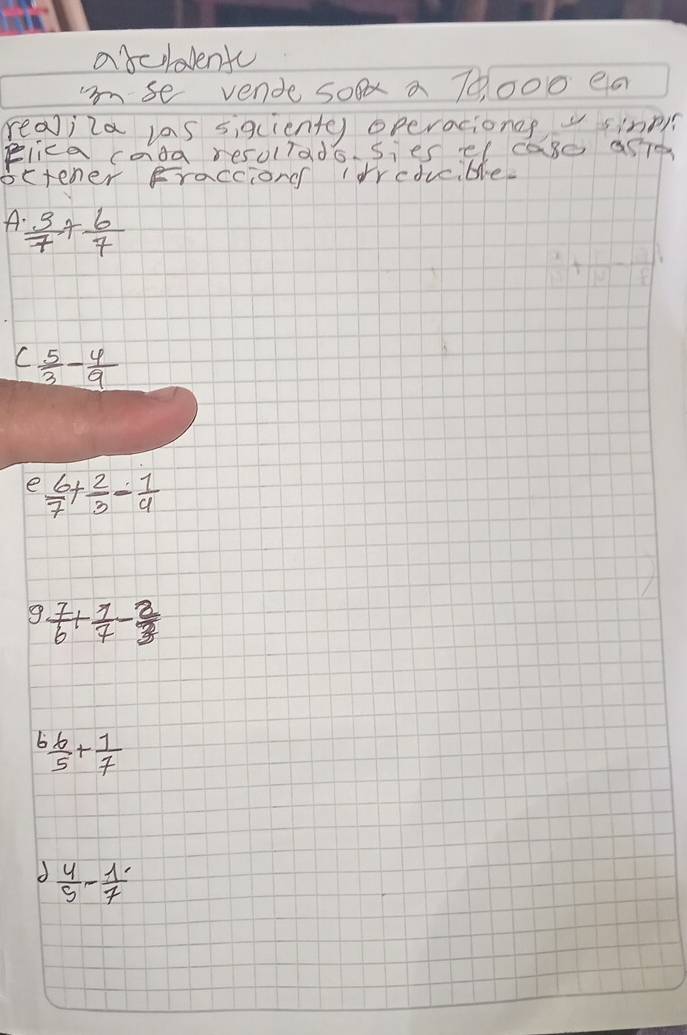 se vende a 70,000 en
realiza las siguientes operaciones, y simpli
Fica cada resultado. si es el caso asta
octener Fracciones irreducible.
A. 3/7 + 6/7
C 5/3 - 4/9
e 6/7 + 2/3 - 1/4
g 7/6 + 1/7 -
b 6/5 + 1/7
d 4/5 - 1/7